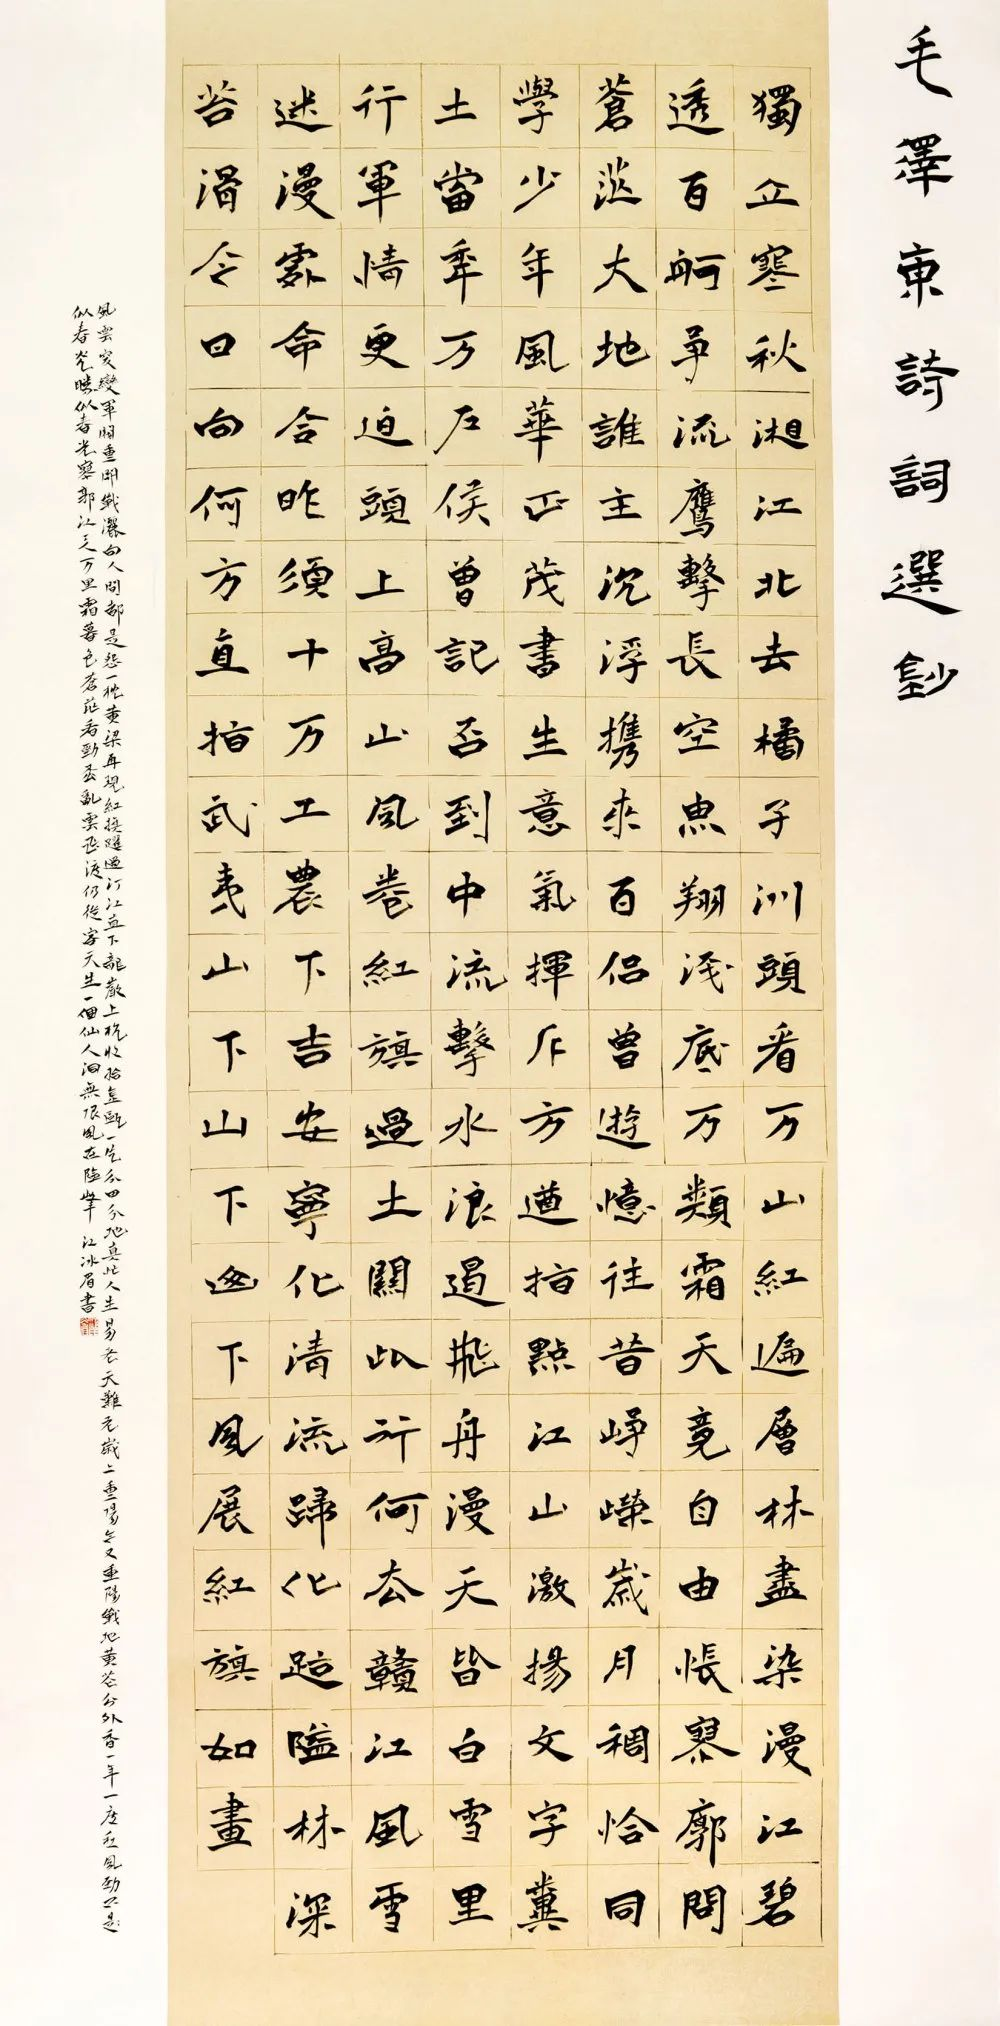 毛澤東詩詞選鈔
獨立寒秋湘江北去橘子洲頭看万山紅遍層林盡染漫江碧
透百舸争流鷹擊長空魚翔淺底万類霜天竟自由悵寥廓問
蒼茫大地誰主沉浮携來百侣曾遊憶往昔崢嶸歲月稠恰同
學少年風華正茂書生意氣揮斥方遒指點江山激揚文字糞
土當年万户侯曾記否到中流擊水浪遏飛舟漫天皆白雪里
行軍情更迫頭上高山風卷紅旗過土關此行何去贛江風雪
迷漫處命合昨須十万工農下吉安寧化清流歸化路隘林深
苔滑今日向何方直指武夷山下山下迤下風展紅旗如畫
風雲突變軍閥重開戰灑向人間都是怨一枕黄粱再現紅旗躍過汀江直下龍巖上杭收拾金甌一片分田分地真忙人生易老天難老歲歲重陽今又重陽戰地黄花分外香一年一度秋風勁不是
似春光勝似春光寥廓江天万里霜暮色蒼茫看勁松亂雲飛渡仍從容天生一個仙人洞無限風在險峯 江冰眉書